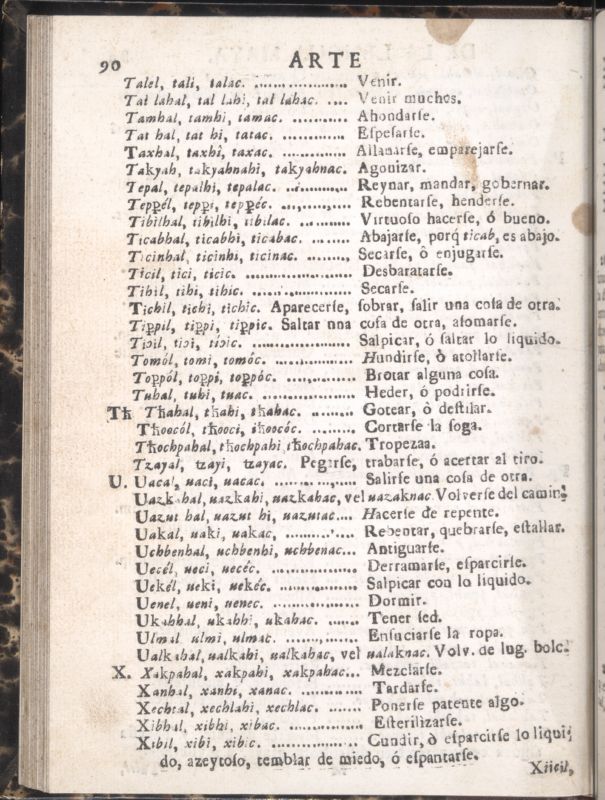 90 ARTE
Talel, tali, talac. .................. Venir.
Tal lahal, tal lahi, tal lahac. .... Venir muchos.
Tamhal, tamhi, tamac. ........... Ahondarſe.
Tat hal, tat hi, tatac. ............. Eſpeſarſe.
Taxhal, taxhi, taxac. ............. Allanarſe, emparejarſe.
Takyah, takyahnahi, takyahnac. Agonizar.
Tepal, tepalhi, tepalac. ............ Reynar, mandar, gobernar.
Tepp̱él, tepp̱i, tepp̱éc. ............ Rebentarſe, henderſe.
Tibilhal, tibilhi, tibilac. ........... Virtuoſo hacerſe, ó bueno.
Ticabhal, ticabhi, ticabac. ........ Abajarſe, porq̃ ticab, es abajo.
Ticinhal, ticinhi, ticinac. ......... Secarſe, ô enjugarſe.
Ticil, tici, ticic. .................... Desbaratarſe.
Tihil, tihi, tihic. .................. Secarſe.
Tichil, tichi, tichic. Aparecerſe, ſobrar, ſalir una coſa de otra.
Tipp̱il, tipp̱i, tipp̱ic. Saltar una coſa de otra, aſomarſe.
Tiɔil, tiɔi, tiɔic. .................. Salpicar, ó ſaltar lo liquido.
Tomól, tomi, tomóc. ............. Hundirſe, ò atollarſe.
Topp̱ól, topp̱i, topp̱óc. ............. Brotar alguna coſa.
Tuhal, tuhi, tuac. ................. Heder, ó podrirſe.
Tħ Tħahal, tħahi, tħahac. ........ Gotear, ò deſtilar.
Tħocól, tħoci, tħocóc. .......... Cortarſe la ſoga.
Tħochpahal, tħochpahi, tħochpahac. Tropezaa.
Tzayal, tzayi, tzayac. Pegarſe, trabarſe, ó acertar al tiro.
U. Uacal, uaci, uacac. .............. Salirſe una coſa de otra.
Uazkahal, uazkahi, uazkahac, vel uazaknac. Volverſe del camin.
Uazut hal, uazut hi, uazutac.... Hacerſe de repente.
Uakal, uaki, uakac, ............. Rebentar, quebrarſe, eſtallar.
Uchbenhal, uchbenhi, uchbenac... Antiguarſe.
Uecél, ueci, uecéc. ................ Derramarſe, eſparcirſe.
Uekél, ueki, uekéc. ............... Salpicar con lo liquido.
Uenel, ueni, uenec. ............... Dormir.
Ukahhal, ukahhi, ukahac. ...... Tener ſed.
Ulmal ulmi, ulmac. ............. Enſuciarſe la ropa.
Ualkahal, ualkahi, ualkahac, vel ualaknac. Volv. de lug. bolc.
X. Xakpahal, xakpahi, xakpahac... Mezclarſe.
Xanhal, xanhi, xanac. ........... Tardarſe.
Xechtal, xechlahi, xechlac. ....... Ponerſe patente algo.
Xibhal, xibhi, xibac. ............ Eſterilizarſe.
Xibil, xibi, xibic. ................ Cundir, ò eſparcirſe lo liqui-
do, azeytoſo, temblar de miedo, ó eſpantarſe.
Xiicil,